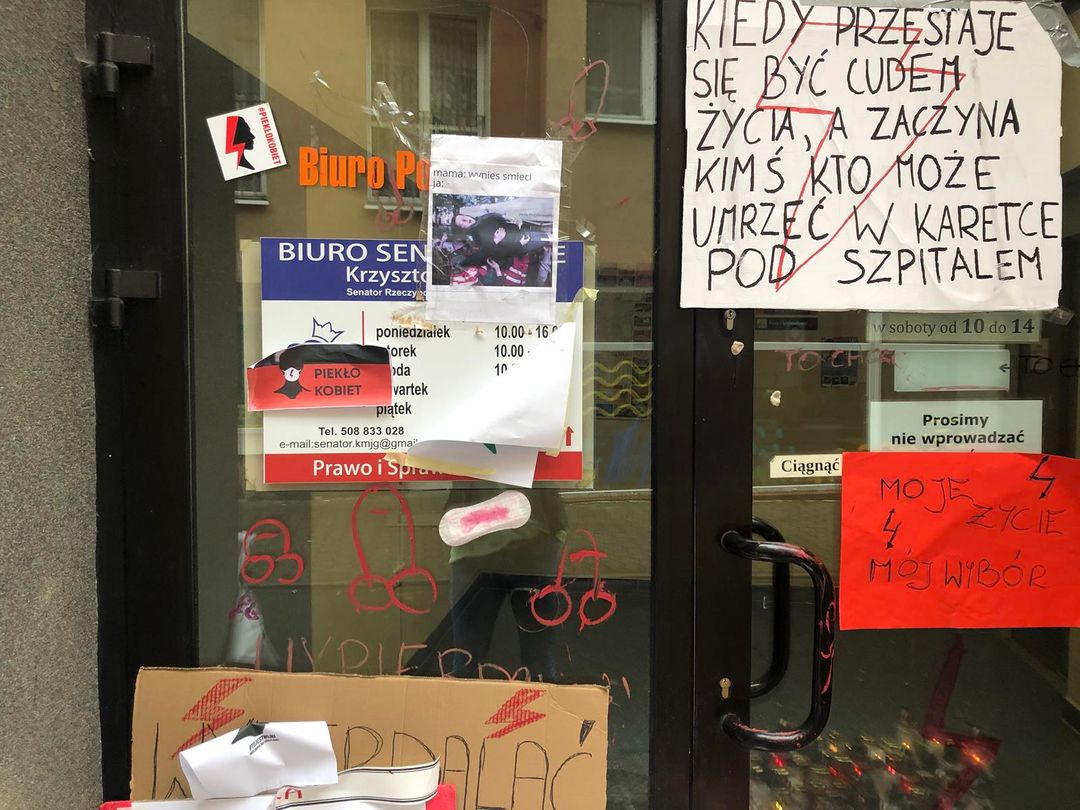 #PIEKŁOKOBIET
Biuro Po
mama: wynies smieci
ja:
BIURO SEN
Krzyszto
Senator Rzeczyp
poniedziałek 10.00 - 16.0
torek 10.00 -
oda 10
wartek
piątek
Tel. 508 833 028
e-mail:senator.kmjg@gmail
Prawo i Spraw
PIEKŁO
KOBIET
WYPIERDA
KIEDY PRZESTAJE
SIĘ BYĆ CUDEM
ŻYCIA, A ZACZYNA
KIMŚ KTO MOŻE
UMRZEĆ W KARETCE
POD SZPITALEM
w soboty od 10 do 14
TO CHORE
TO
Prosimy
nie wprowadzać
Ciągnąć
MOJE
ŻYCIE
MÓJ WYBÓR
DALAĆ